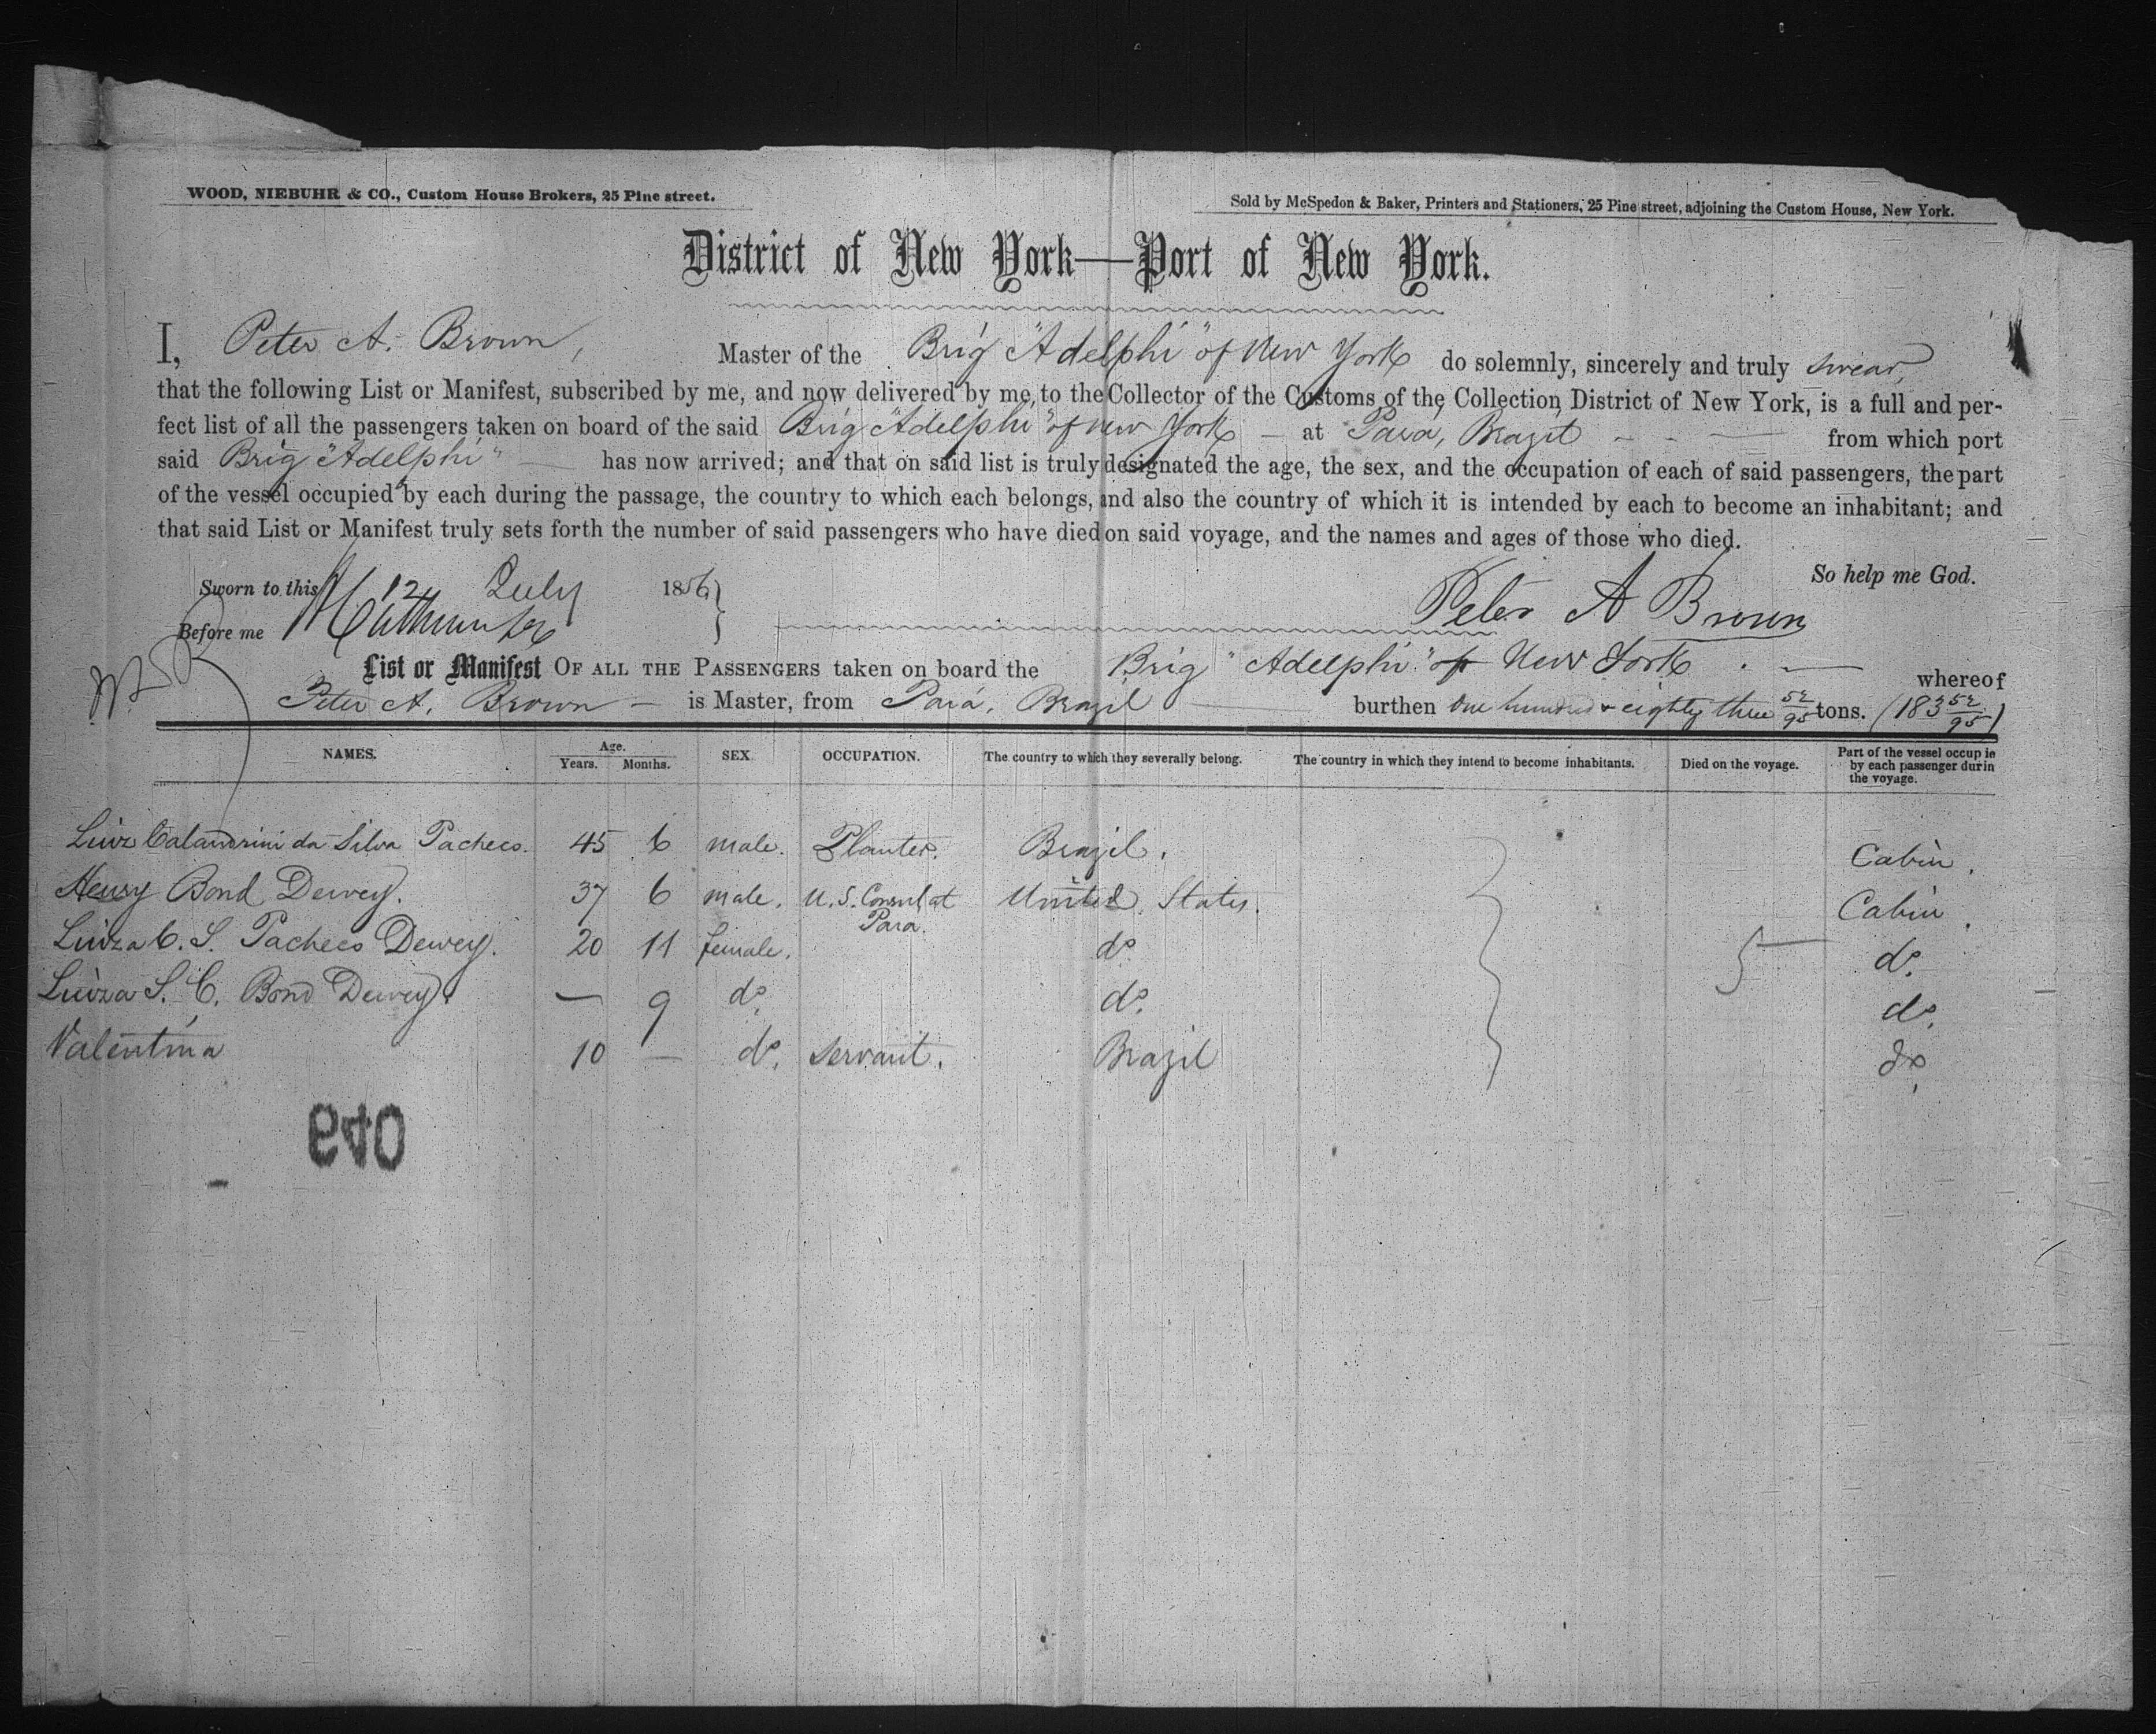 WOOD, NIEBUHR & CO., Custom House Brokers, 25 Pine street.
Sold by McSpedon & Baker, Printers and Stationers, 25 Pine street, adjoining the Custom House, New York.
District of New York—Port of New York.
I, Peter A. Brown, Master of the Brig "Adelphi" of New York do solemnly, sincerely and truly swear,
that the following List or Manifest, subscribed by me, and now delivered by me, to the Collector of the Customs of the Collection District of New York, is a full and per-
fect list of all the passengers taken on board of the said Brig "Adelphi" of New York — at Para, Brazil — from which port
said Brig "Adelphi" — has now arrived; and that on said list is truly designated the age, the sex, and the occupation of each of said passengers, the part
of the vessel occupied by each during the passage, the country to which each belongs, and also the country of which it is intended by each to become an inhabitant; and
that said List or Manifest truly sets forth the number of said passengers who have died on said voyage, and the names and ages of those who died.
So help me God.
Sworn to this 12 July 1856
Peter A Brown
Before me
List or Manifest OF ALL THE PASSENGERS taken on board the Brig "Adelphi" of New York . — whereof
Peter A. Brown — is Master, from Pará, Brazil burthen One hundred & eighty three 52/95 tons. (183 52/95)
NAMES. Age. Years. Months. SEX. OCCUPATION. The country to which they severally belong. The country in which they intend to become inhabitants. Died on the voyage. Part of the vessel occupie by each passenger durin the voyage.
Luiz Calandrini da Silva Pacheco. 45 6 male. Planter. Brazil. Cabin.
Henry Bond Dewey. 37 6 male. U.S. Consul at Para. United States. Cabin.
Luiza C. S. Pacheco Dewey. 20 11 female. do do.
Luiza S. C. Bond Dewey. — 9 do. do. do.
Valentina 10 — do. servant. Brazil do.
5
040